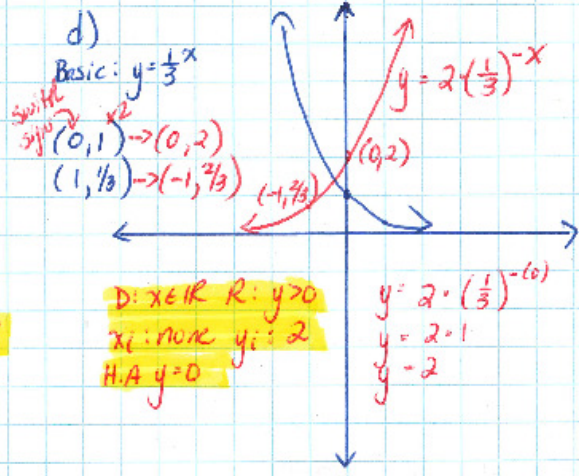 d)
Basic: y = 1/3^x
switch sign
x2
(0, 1) -> (0, 2)
(1, 1/3) -> (-1, 2/3)
y = 2·(1/3)^-x
(0,2)
(-1, 2/3)
D: x∈IR R: y>0
xi: none yi: 2
H.A y=0
y = 2·(1/3)^-(0)
y = 2·1
y = 2